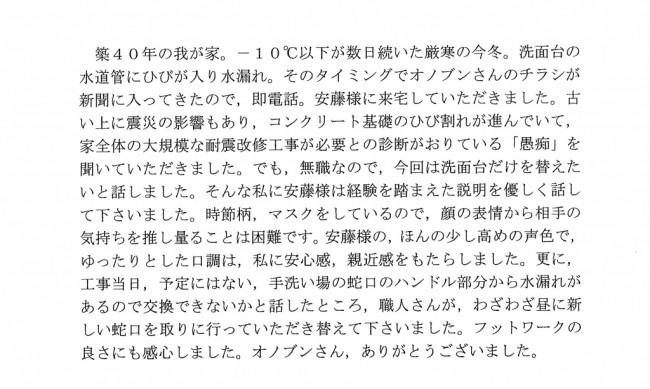 築４０年の我が家。－１０℃以下が数日続いた厳寒の今冬。洗面台の
水道管にひびが入り水漏れ。そのタイミングでオノブンさんのチラシが
新聞に入ってきたので，即電話。安藤様に来宅していただきました。古
い上に震災の影響もあり，コンクリート基礎のひび割れが進んでいて，
家全体の大規模な耐震改修工事が必要との診断がおりている「愚痴」を
聞いていただきました。でも，無職なので，今回は洗面台だけを替えた
いと話しました。そんな私に安藤様は経験を踏まえた説明を優しく話し
て下さいました。時節柄，マスクをしているので，顔の表情から相手の
気持ちを推し量ることは困難です。安藤様の，ほんの少し高めの声色で，
ゆったりとした口調は，私に安心感，親近感をもたらしました。更に，
工事当日，予定にはない，手洗い場の蛇口のハンドル部分から水漏れが
あるので交換できないかと話したところ，職人さんが，わざわざ昼に新
しい蛇口を取りに行っていただき替えて下さいました。フットワークの
良さにも感心しました。オノブンさん，ありがとうございました。